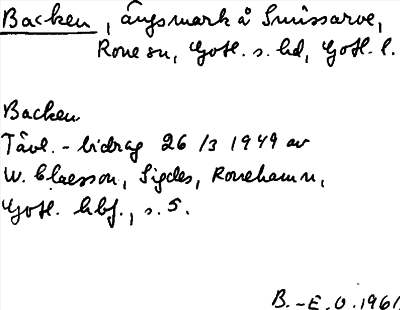 Backen, ängsmark å Smissarve,
Rone sn, Gotl. s. hd, Gotl. l.
Backen
Tävl.-bidrag 26/3 1949 av
W. Claesson, Sigdes, Ronehamn,
Gotl. hbf., s. 5.
B.-E.O. 1961.